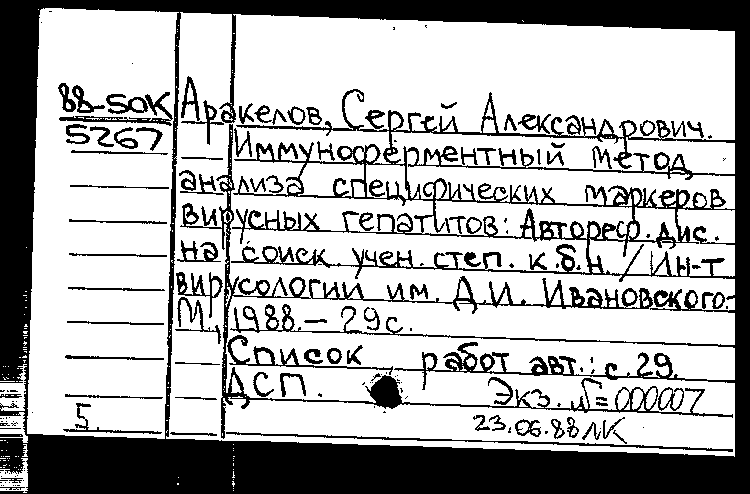 88-50К Аракелов, Сергей Александрович.
5267 Иммуноферментный метод
анализа специфических маркеров
вирусных гепатитов: Автореф. дис.
на соиск. учен. степ. к.б.н. / Ин-т
вирусологии им. Д.И. Ивановского.-
М., 1988. - 29 с.
Список работ авт.: с. 29.
ДСП. Экз. № 000007
5. 23.06.88 ЛК